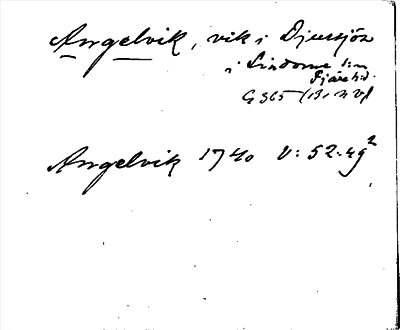 Angelvik, vik i Djursjön
i Lindome sn
Fjäre hd.
G 365
Angelvik 1740 V: 52.49²